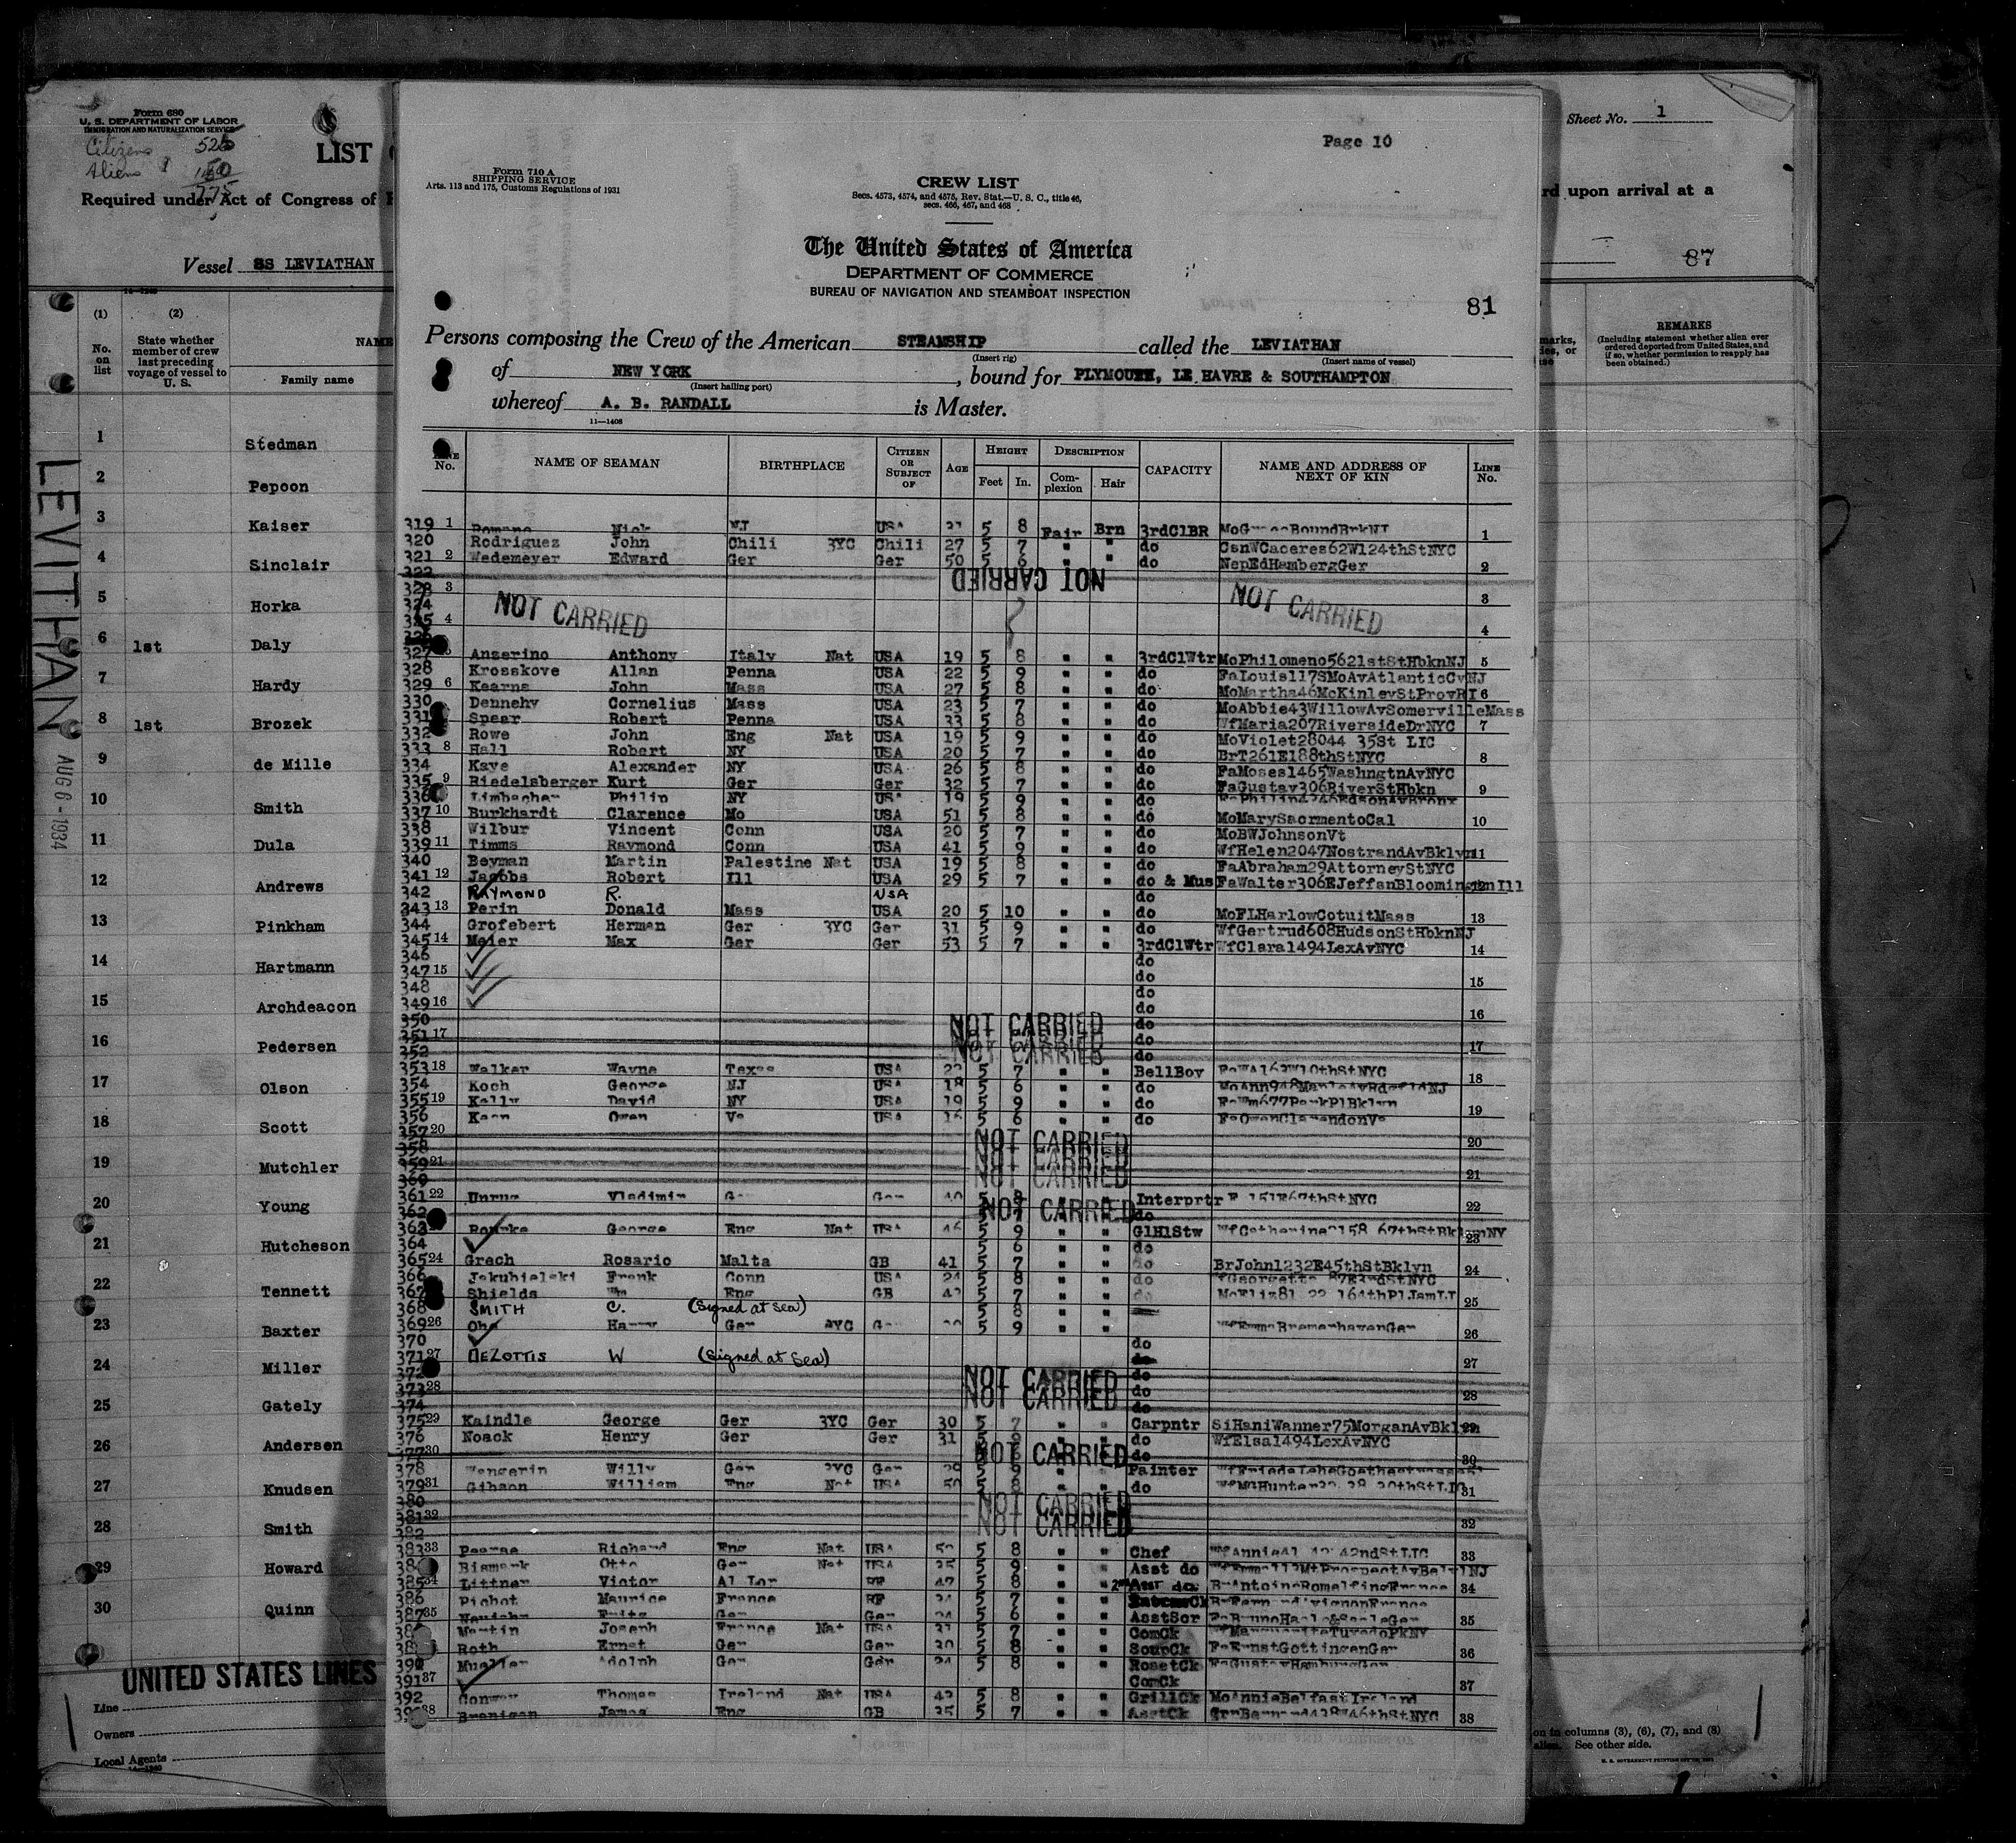 Form 680
U. S. DEPARTMENT OF LABOR
IMMIGRATION AND NATURALIZATION SERVICE
Citizens 525
Aliens
775
LIST
Required under Act of Congress of
Vessel SS LEVIATHAN
(1) (2)
No. on list
State whether member of crew last preceding voyage of vessel to U. S.
NAME
Family name
1 Stedman
2 Pepoon
3 Kaiser
4 Sinclair
5 Horka
6 1st Daly
7 Hardy
8 1st Brozek
9 de Mille
10 Smith
11 Dula
12 Andrews
13 Pinkham
14 Hartmann
15 Archdeacon
16 Pedersen
17 Olson
18 Scott
19 Mutchler
20 Young
21 Hutcheson
22 Tennett
23 Baxter
24 Miller
25 Gately
26 Andersen
27 Knudsen
28 Smith
29 Howard
30 Quinn
UNITED STATES LINES
Line
Owners
Local Agents
LEVITHAN
AUG 6 - 1934
Page 10
Form 710 A
SHIPPING SERVICE
Arts. 113 and 175, Customs Regulations of 1931
CREW LIST
Secs. 4573, 4574, and 4575, Rev. Stat.—U. S. C., title 46,
secs. 466, 467, and 468
The United States of America
DEPARTMENT OF COMMERCE
BUREAU OF NAVIGATION AND STEAMBOAT INSPECTION
81
Persons composing the Crew of the American STEAMSHIP called the LEVIATHAN
(Insert rig) (Insert name of vessel)
of NEW YORK, bound for PLYMOUTH, LE HAVRE & SOUTHAMPTON
(Insert hailing port)
whereof A. B. RANDALL is Master.
11—1408
LINE No. NAME OF SEAMAN BIRTHPLACE CITIZEN OR SUBJECT OF AGE HEIGHT Feet In. DESCRIPTION Complexion Hair CAPACITY NAME AND ADDRESS OF NEXT OF KIN LINE No.
319 1 Romano Nick NJ USA 5 8 Fair Brn 3rdClBR 1
320 Rodriguez John Chili 3YC Chili 27 5 7 " " do CsnWCaceres62W124thStNYC
321 2 Wedemeyer Edward Ger Ger 50 5 6 " " do NepEdHambergGer 2
322 NOT CARRIED
323 3 NOT CARRIED NOT CARRIED 3
324
325 4 4
326
327 Anserino Anthony Italy Nat USA 19 5 8 " " 3rdClWtr MoPhilomeno5621stStHbknNJ 5
328 Krosskove Allan Penna USA 22 5 9 " " do FaLouis117SMoAvAtlanticCyNJ
329 6 Kearns John Mass USA 27 5 8 " " do MoMartha46McKinleyStProvRI 6
330 Dennehy Cornelius Mass USA 23 5 7 " " do MoAbbie43WillowAvSomervilleMass
331 Spear Robert Penna USA 33 5 8 " " do WfMaria207RiversideDrNYC 7
332 Rowe John Eng Nat USA 19 5 9 " " do MoViolet28044 35St LIC
333 8 Hall Robert NY USA 20 5 7 " " do BrT261E188thStNYC 8
334 Kaye Alexander NY USA 26 5 8 " " do FaMoses1465WashngtnAvNYC
335 9 Riedelsberger Kurt Ger Ger 32 5 7 " " do FaGustav306RiverStHbkn 9
336 Limbacher Philip NY USA 19 5 9 " " do FaPhilip4246EdsonAvBronx
337 10 Burkhardt Clarence Mo USA 51 5 8 " " do MoMarySacrmentoCal 10
338 Wilbur Vincent Conn USA 20 5 7 " " do MoBWJohnsonVt
339 11 Timms Raymond Conn USA 41 5 9 " " do WfHelen2047NostrandAvBklyn 11
340 Beyman Martin Palestine Nat USA 19 5 8 " " do FaAbraham29AttorneyStNYC
341 12 Jacobs Robert Ill USA 29 5 7 " " do & Mus FaWalter306EJeffsnBloomingtnIll 12
342 RAYMOND R. USA do
343 13 Perin Donald Mass USA 20 5 10 " " do MoFLHarlowCotuitMass 13
344 Grofebert Herman Ger 3YC Ger 31 5 9 " " do WfGertrud608HudsonStHbknNJ
345 14 Meier Max Ger Ger 53 5 7 " " 3rdClWtr WfClara1494LexAvNYC 14
346 do
347 15 do 15
348 do
349 16 do 16
350 NOT CARRIED do
351 17 NOT CARRIED do 17
352 NOT CARRIED do
353 18 Walker Wayne Texas USA 5 7 " " BellBoy 18
354 Koch George NJ USA 18 5 6 " " do
355 19 Kelly David NY USA 19 5 9 " " do FaWm677ParkPlBklyn 19
356 Keen Owen Va USA 16 5 6 " " do FaOwenClarendonVa
357 20 NOT CARRIED 20
358 NOT CARRIED
359 21 NOT CARRIED 21
360 NOT CARRIED
361 22 Unrug Vladimir Ger 40 5 8 " " Interprtr 151E67thStNYC 22
362 NOT CARRIED do
363 Rourke George Eng Nat USA 46 5 9 " " GlHlStw 23
364 5 6 " " do
365 24 Grech Rosario Malta GB 41 5 7 " " do BrJohn1232E45thStBklyn 24
366 Jakubielski Frank Conn USA 24 5 8 " " do
367 Shields Wm Eng GB 5 7 " " do 25
368 SMITH C. (Signed at sea) 5 8 " "
369 26 Harry Ger 3YC 5 9 " " WfEmmaBremerhavenGer 26
370 do
371 27 DEZOTTIS W (Signed at Sea) 27
372 NOT CARRIED do
373 28 NOT CARRIED do 28
374 do
375 29 Kaindle George Ger 3YC Ger 30 5 7 " " Carpntr SiHaniWanner75MorganAvBklyn 29
376 Noack Henry Ger Ger 31 5 9 " " do WfElsa1494LexAvNYC
377 30 NOT CARRIED do 30
378 Wangerin Willy Ger 3YC Ger 29 5 9 " " Painter
379 31 Gibson William Eng Nat USA 50 5 8 " " do 31
380 NOT CARRIED
381 32 NOT CARRIED 32
382
383 33 Pearse Richard Eng Nat USA 5 8 " " Chef 33
Bismark Otto Ger Nat USA 35 5 9 " " Asst do
385 34 Littner Victor Al Lor RF 47 5 8 " " 2nd Asst do BrAntoineRomelfingFrance 34
386 Pichot Maurice France RF 5 7 " "
387 35 Fritz Ger Ger 24 5 6 " " AsstScr 35
Martin Joseph France Nat USA 5 7 " " ComCk WfMargueriteTuxedoPkNY
Roth Ernst Ger Ger 30 5 8 " " SoupCk FaErnstGottingenGer 36
390 Mueller Adolph Ger Ger 24 5 8 " " RosetCk FaGustavHamburgGer
391 37 ComCk 37
392 Conway Thomas Ireland Nat USA 5 8 " " GrillCk MoAnnieBelfastIreland
38 Branigan James Eng GB 35 5 7 " " AsstCk 38
Sheet No. 1
rd upon arrival at a
87
REMARKS
(Including statement whether alien ever ordered deported from United States, and if so, whether permission to reapply has been obtained.)
on in columns (3), (6), (7), and (8)
See other side.
U. S. GOVERNMENT PRINTING OFFICE